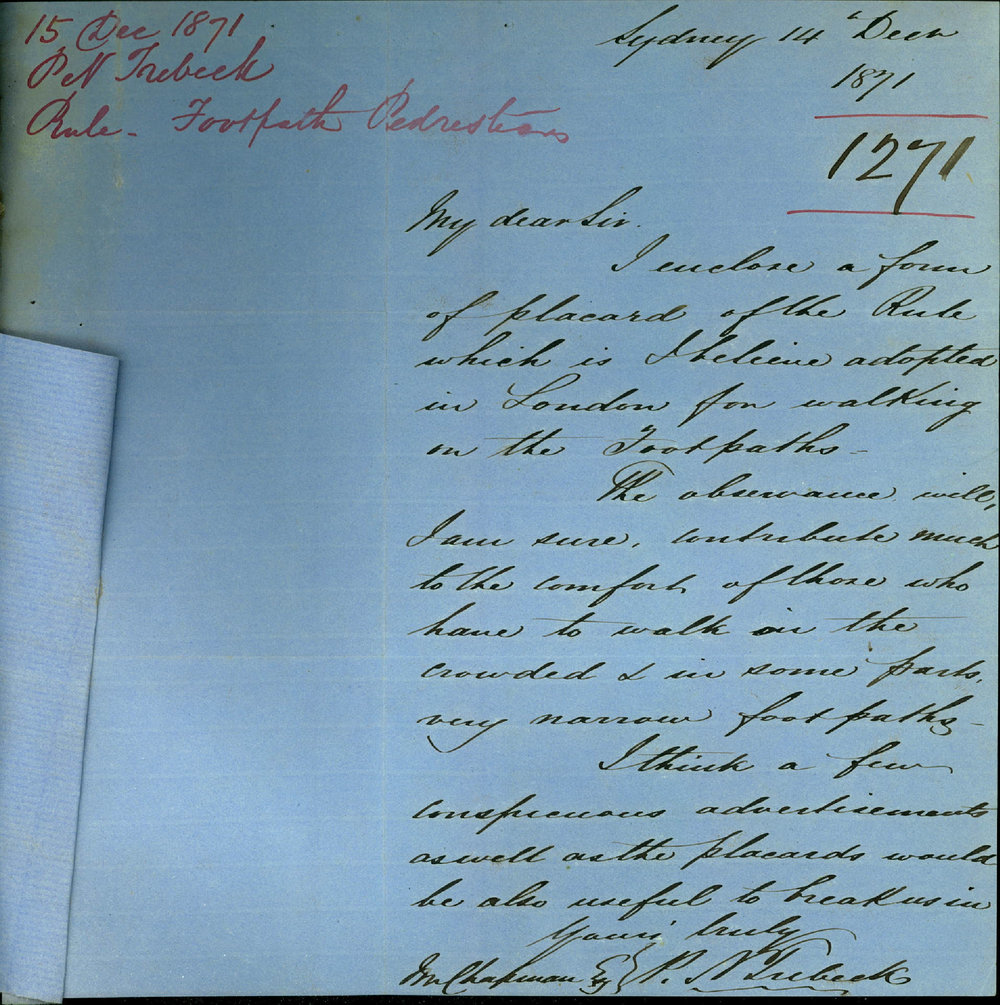 15 Dec 1871
P N Trebeck
Rule - Footpath Pedrestians
Sydney 14 Decr
1871
1271
My dear Sir.
I enclose a form
of placard of the Rule
which is I believe adopted
in London for walking
on the Footpaths -
The observance will,
I am sure, contribute much
to the comfort of those who
have to walk on the
crowded & in some parts,
very narrow foot paths -
I think a few
conspicuous advertisements
as well as the placards would
be also useful to break us in
Yours truly
P. N Trebeck
Wm Chapman Esq